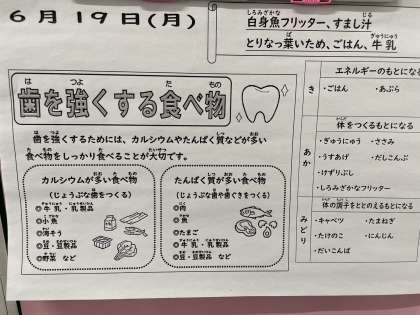 6月19日(月)
白身魚フリッター、すまし汁
とりなっ葉いため、ごはん、牛乳
歯を強くする食べ物
歯を強くするためには、カルシウムやたんぱく質などが多い
食べ物をしっかり食べることが大切です。
カルシウムが多い食べ物
（じょうぶな歯をつくる）
◎牛乳・乳製品
◎小魚
◎海そう
◎豆・豆製品
◎野菜 など
たんぱく質が多い食べ物
（じょうぶな歯や歯ぐきをつくる）
◎肉
◎魚
◎たまご
◎牛乳・乳製品
◎豆・豆製品 など
エネルギーのもとになる
き
・ごはん ・あぶら
体をつくるもとになる
あか
・ぎゅうにゅう ・ささみ
・うすあげ ・だしこんぶ
・けずりぶし
・しろみざかなフリッター
体の調子をととのえるもとになる
みどり
・キャベツ ・たまねぎ
・たけのこ ・にんじん
・だいこんば